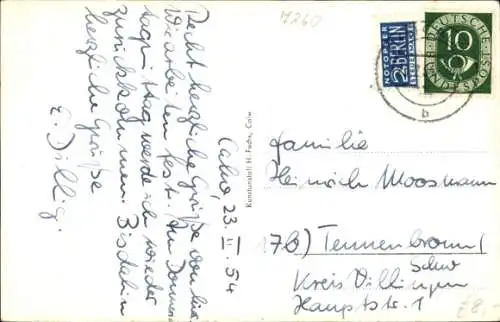 7260
Calw, 23. II. 54
Recht herzliche Grüße von hier.
Wir arbeiten fest. Am Donners
tagmittag werde ich wieder
zurückkommen. Bis dahin
herzliche Grüße
E. Dillig.
Kunstanstalt H. Fuchs, Calw
NOTOPFER
2 BERLIN
STEUERMARKE
DEUTSCHE BUNDESPOST
10
b
Familie
Heinrich Moosmann
17b) Tennenbronn/
Schw
Kreis Villingen
Hauptstr. 1
£8,-